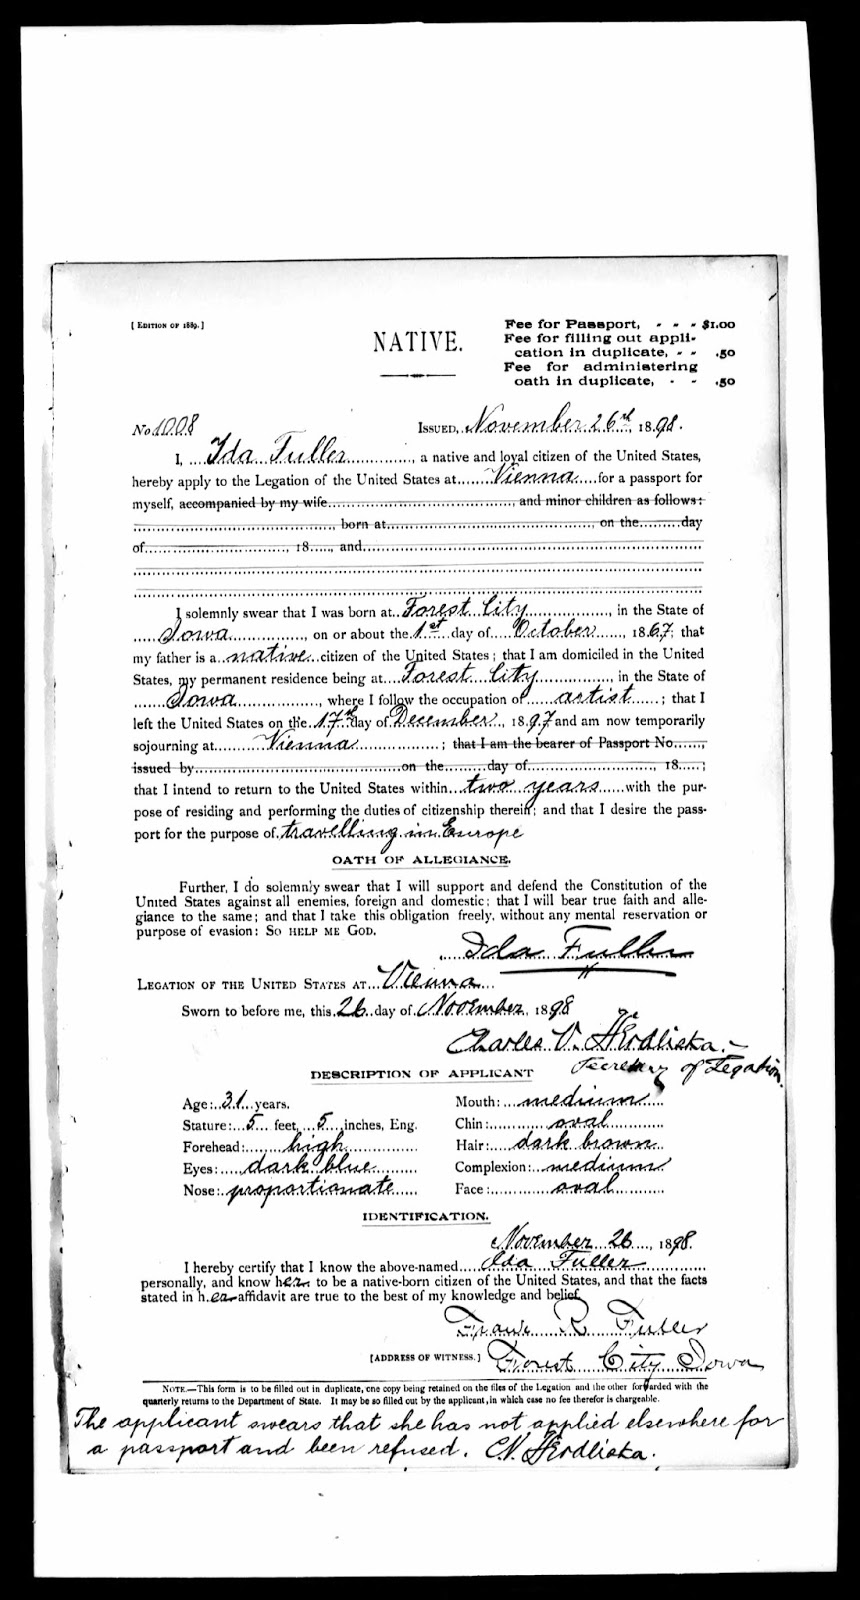 [ Edition of 1889. ]
NATIVE.
Fee for Passport, - - - $1.00
Fee for filling out appli-
cation in duplicate, - - .50
Fee for administering
oath in duplicate, - - .50
No. 1008 Issued, November 26th, 1898.
I, Ida Fuller, a native and loyal citizen of the United States,
hereby apply to the Legation of the United States at Vienna for a passport for
myself, accompanied by my wife, and minor children as follows:
, born at, on the day
of, 18, and
I solemnly swear that I was born at Forest City, in the State of
Iowa, on or about the 1st day of October, 1867; that
my father is a native citizen of the United States; that I am domiciled in the United
States, my permanent residence being at Forest City, in the State of
Iowa, where I follow the occupation of artist; that I
left the United States on the 17th day of December, 1897 and am now temporarily
sojourning at Vienna; that I am the bearer of Passport No.,
issued by on the day of, 18;
that I intend to return to the United States within two years with the pur-
pose of residing and performing the duties of citizenship therein; and that I desire the pass-
port for the purpose of travelling in Europe
OATH OF ALLEGIANCE.
Further, I do solemnly swear that I will support and defend the Constitution of the
United States against all enemies, foreign and domestic; that I will bear true faith and alle-
giance to the same; and that I take this obligation freely, without any mental reservation or
purpose of evasion: So help me God.
Ida Fuller
Legation of the United States at Vienna
Sworn to before me, this 26 day of November, 1898
Charles V. Herdliska.
Secretary of Legation.
DESCRIPTION OF APPLICANT
Age: 31 years. Mouth: medium
Stature: 5 feet, 5 inches, Eng. Chin: oval
Forehead: high Hair: dark brown
Eyes: dark blue Complexion: medium
Nose: proportionate Face: oval
IDENTIFICATION.
November 26, 1898.
I hereby certify that I know the above-named Ida Fuller
personally, and know her to be a native-born citizen of the United States, and that the facts
stated in her affidavit are true to the best of my knowledge and belief.
Frank R. Fuller
[ADDRESS OF WITNESS.] Forest City Iowa
Note.—This form is to be filled out in duplicate, one copy being retained on the files of the Legation and the other forwarded with the
quarterly returns to the Department of State. It may be so filled out by the applicant, in which case no fee therefor is chargeable.
The applicant swears that she has not applied elsewhere for
a passport and been refused. C.V. Herdliska.